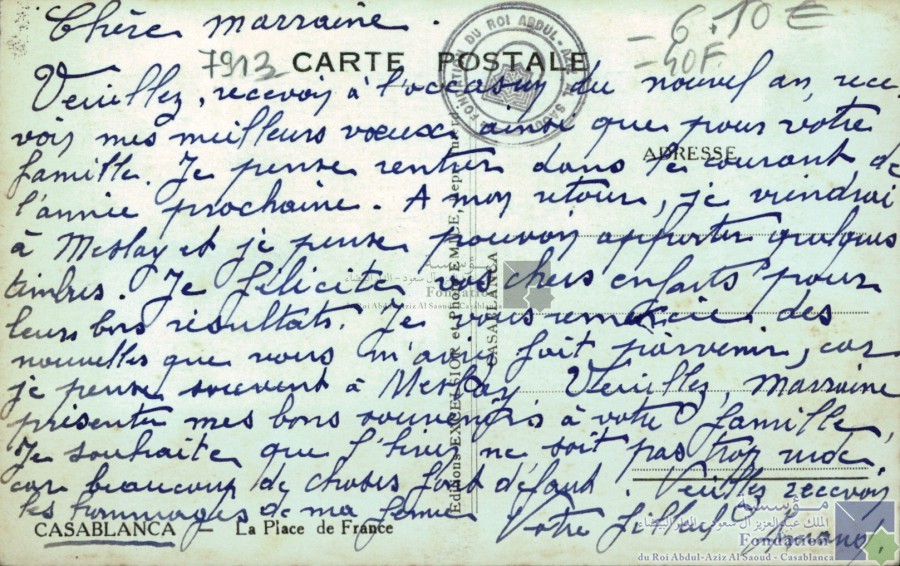 Chère Marraine.
7913
- 6.10€
- 40F.
CARTE POSTALE
FONDATION DU ROI ABDUL-AZIZ
Veuillez, recevoir à l'occasion du nouvel an, rece-
voir mes meilleurs voeux ainsi que pour votre
famille. Je pense rentrer dans le courant de
l'année prochaine. A mon retour, je viendrai
à Meslay et je pense pouvoir apporter quelques
timbres. Je félicite vos chers enfants pour
leurs bons résultats. Je vous remercie des
nouvelles que vous m'avez fait parvenir, car
je pense souvent à Meslay Veuillez, Marraine
présenter mes bons souvenirs à votre famille,
Je souhaite que l'hiver ne soit pas trop rude,
car beaucoup de choses font défaut. Veuillez recevoir
les hommages de ma femme Votre filleul
ADRESSE
Editions EXCELSIOR et Photo EMICE,
CASABLANCA
CASABLANCA — La Place de France
Fondation
du Roi Abdul-Aziz Al Saoud - Casablanca
مؤسسة
الملك عبد العزيز آل سعود - الدار البيضاء
Fondation
du Roi Abdul-Aziz Al Saoud - Casablanca